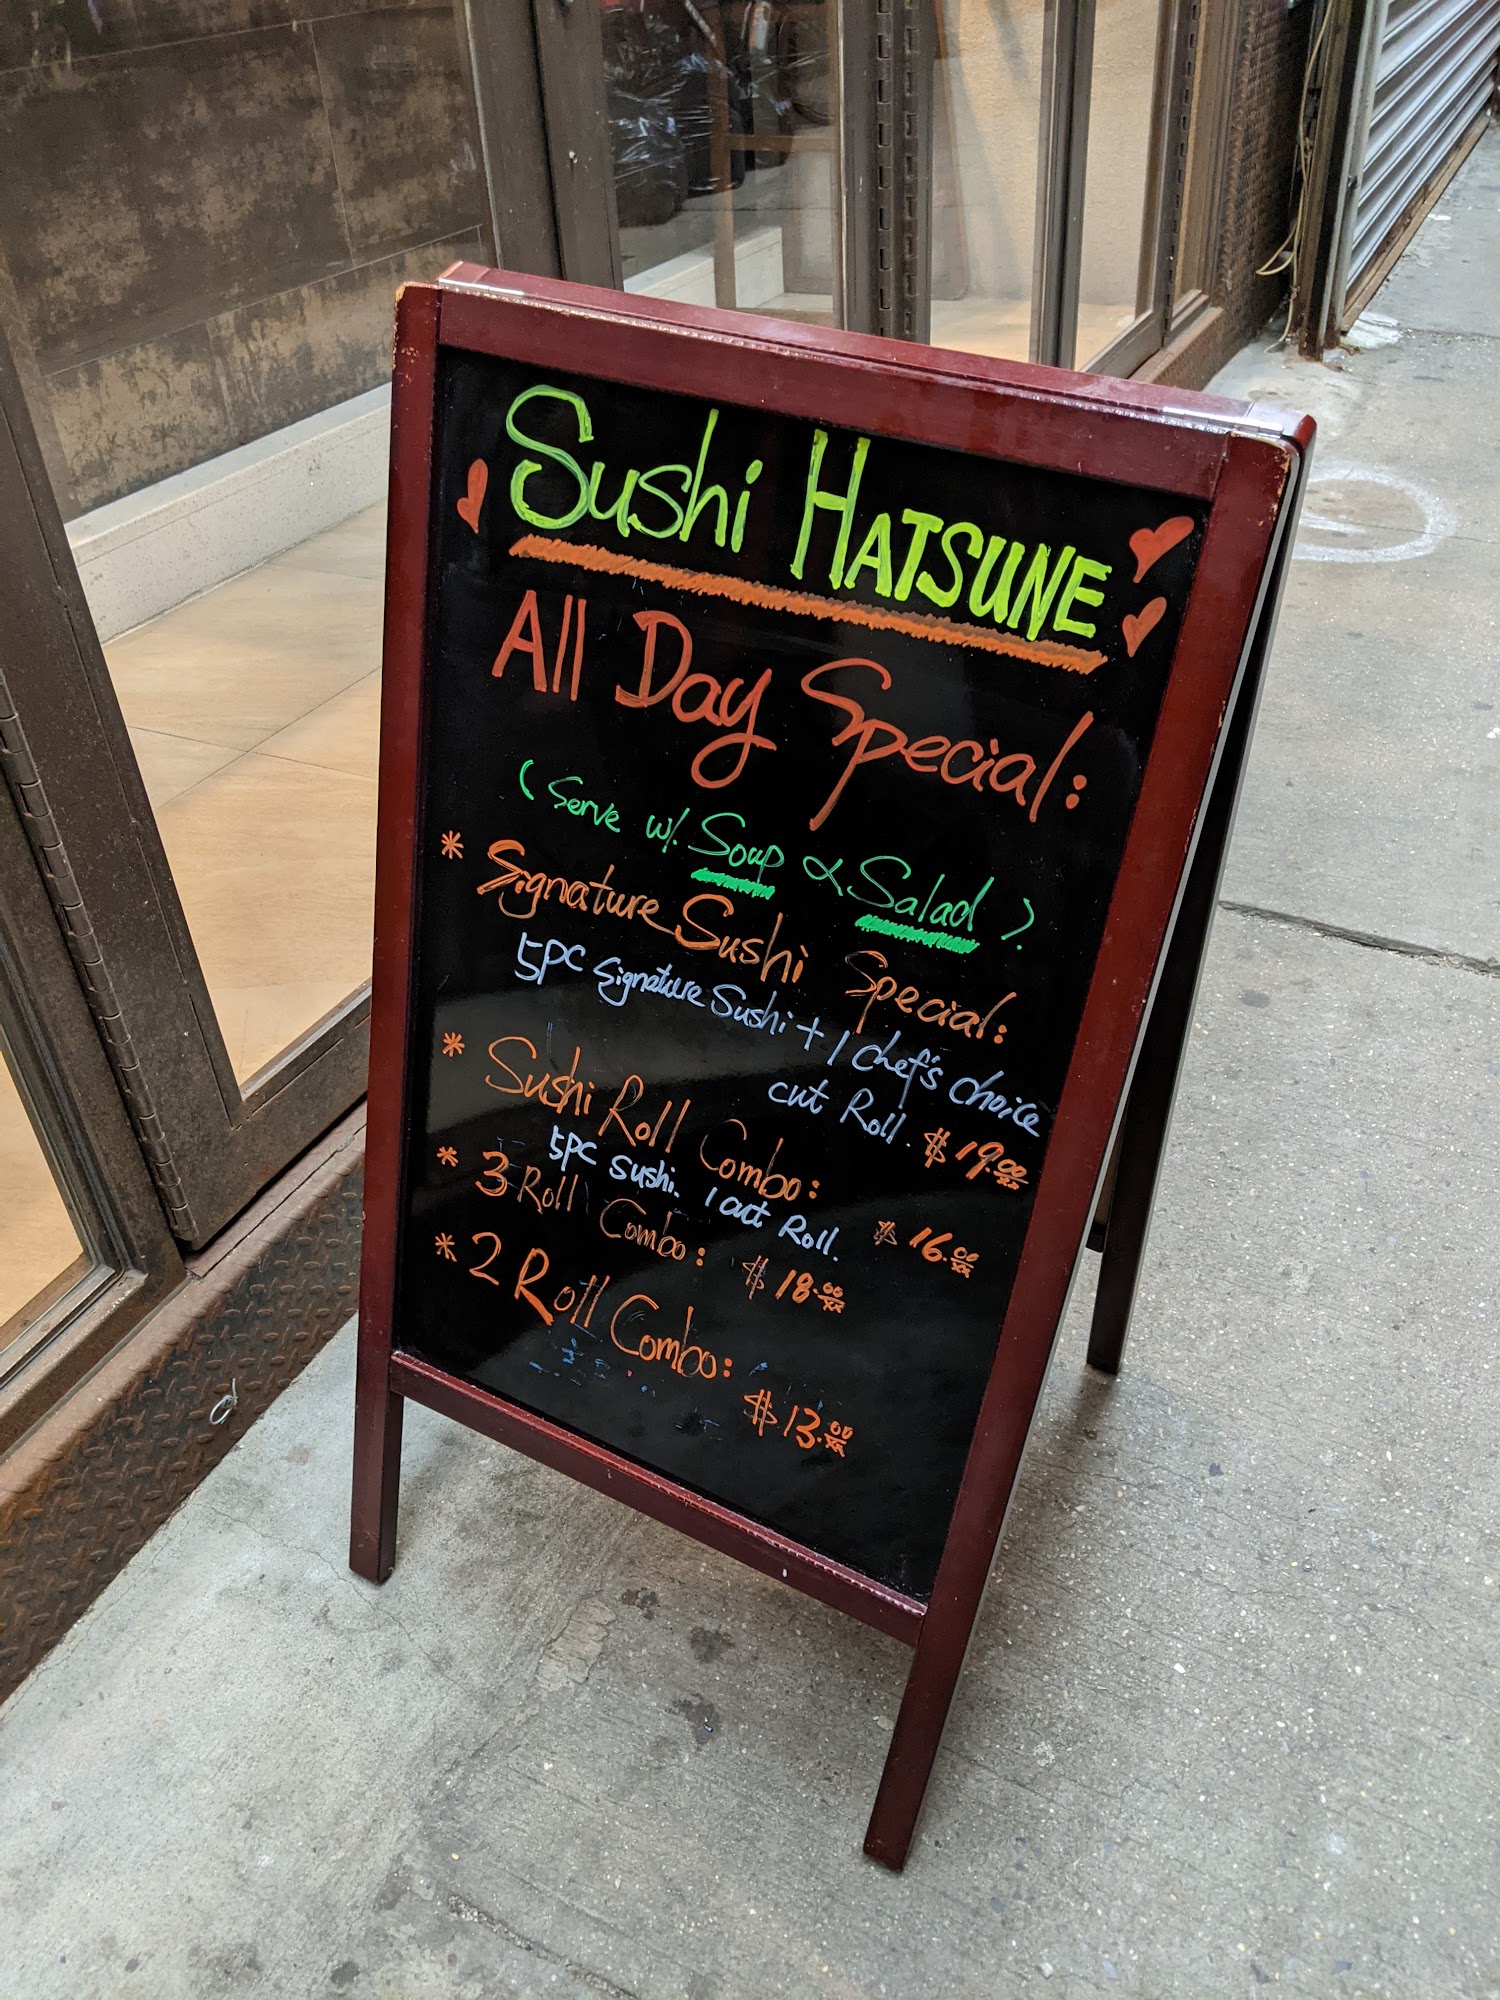 Sushi HATSUNE
All Day Special:
(Serve w/. Soup & Salad).
* Signature Sushi Special:
5PC Signature Sushi + 1 chef's choice
cut Roll. $19.00
* Sushi Roll Combo:
5PC sushi. 1 cut Roll. $16.00
* 3 Roll Combo: $18.00
* 2 Roll Combo: $13.00